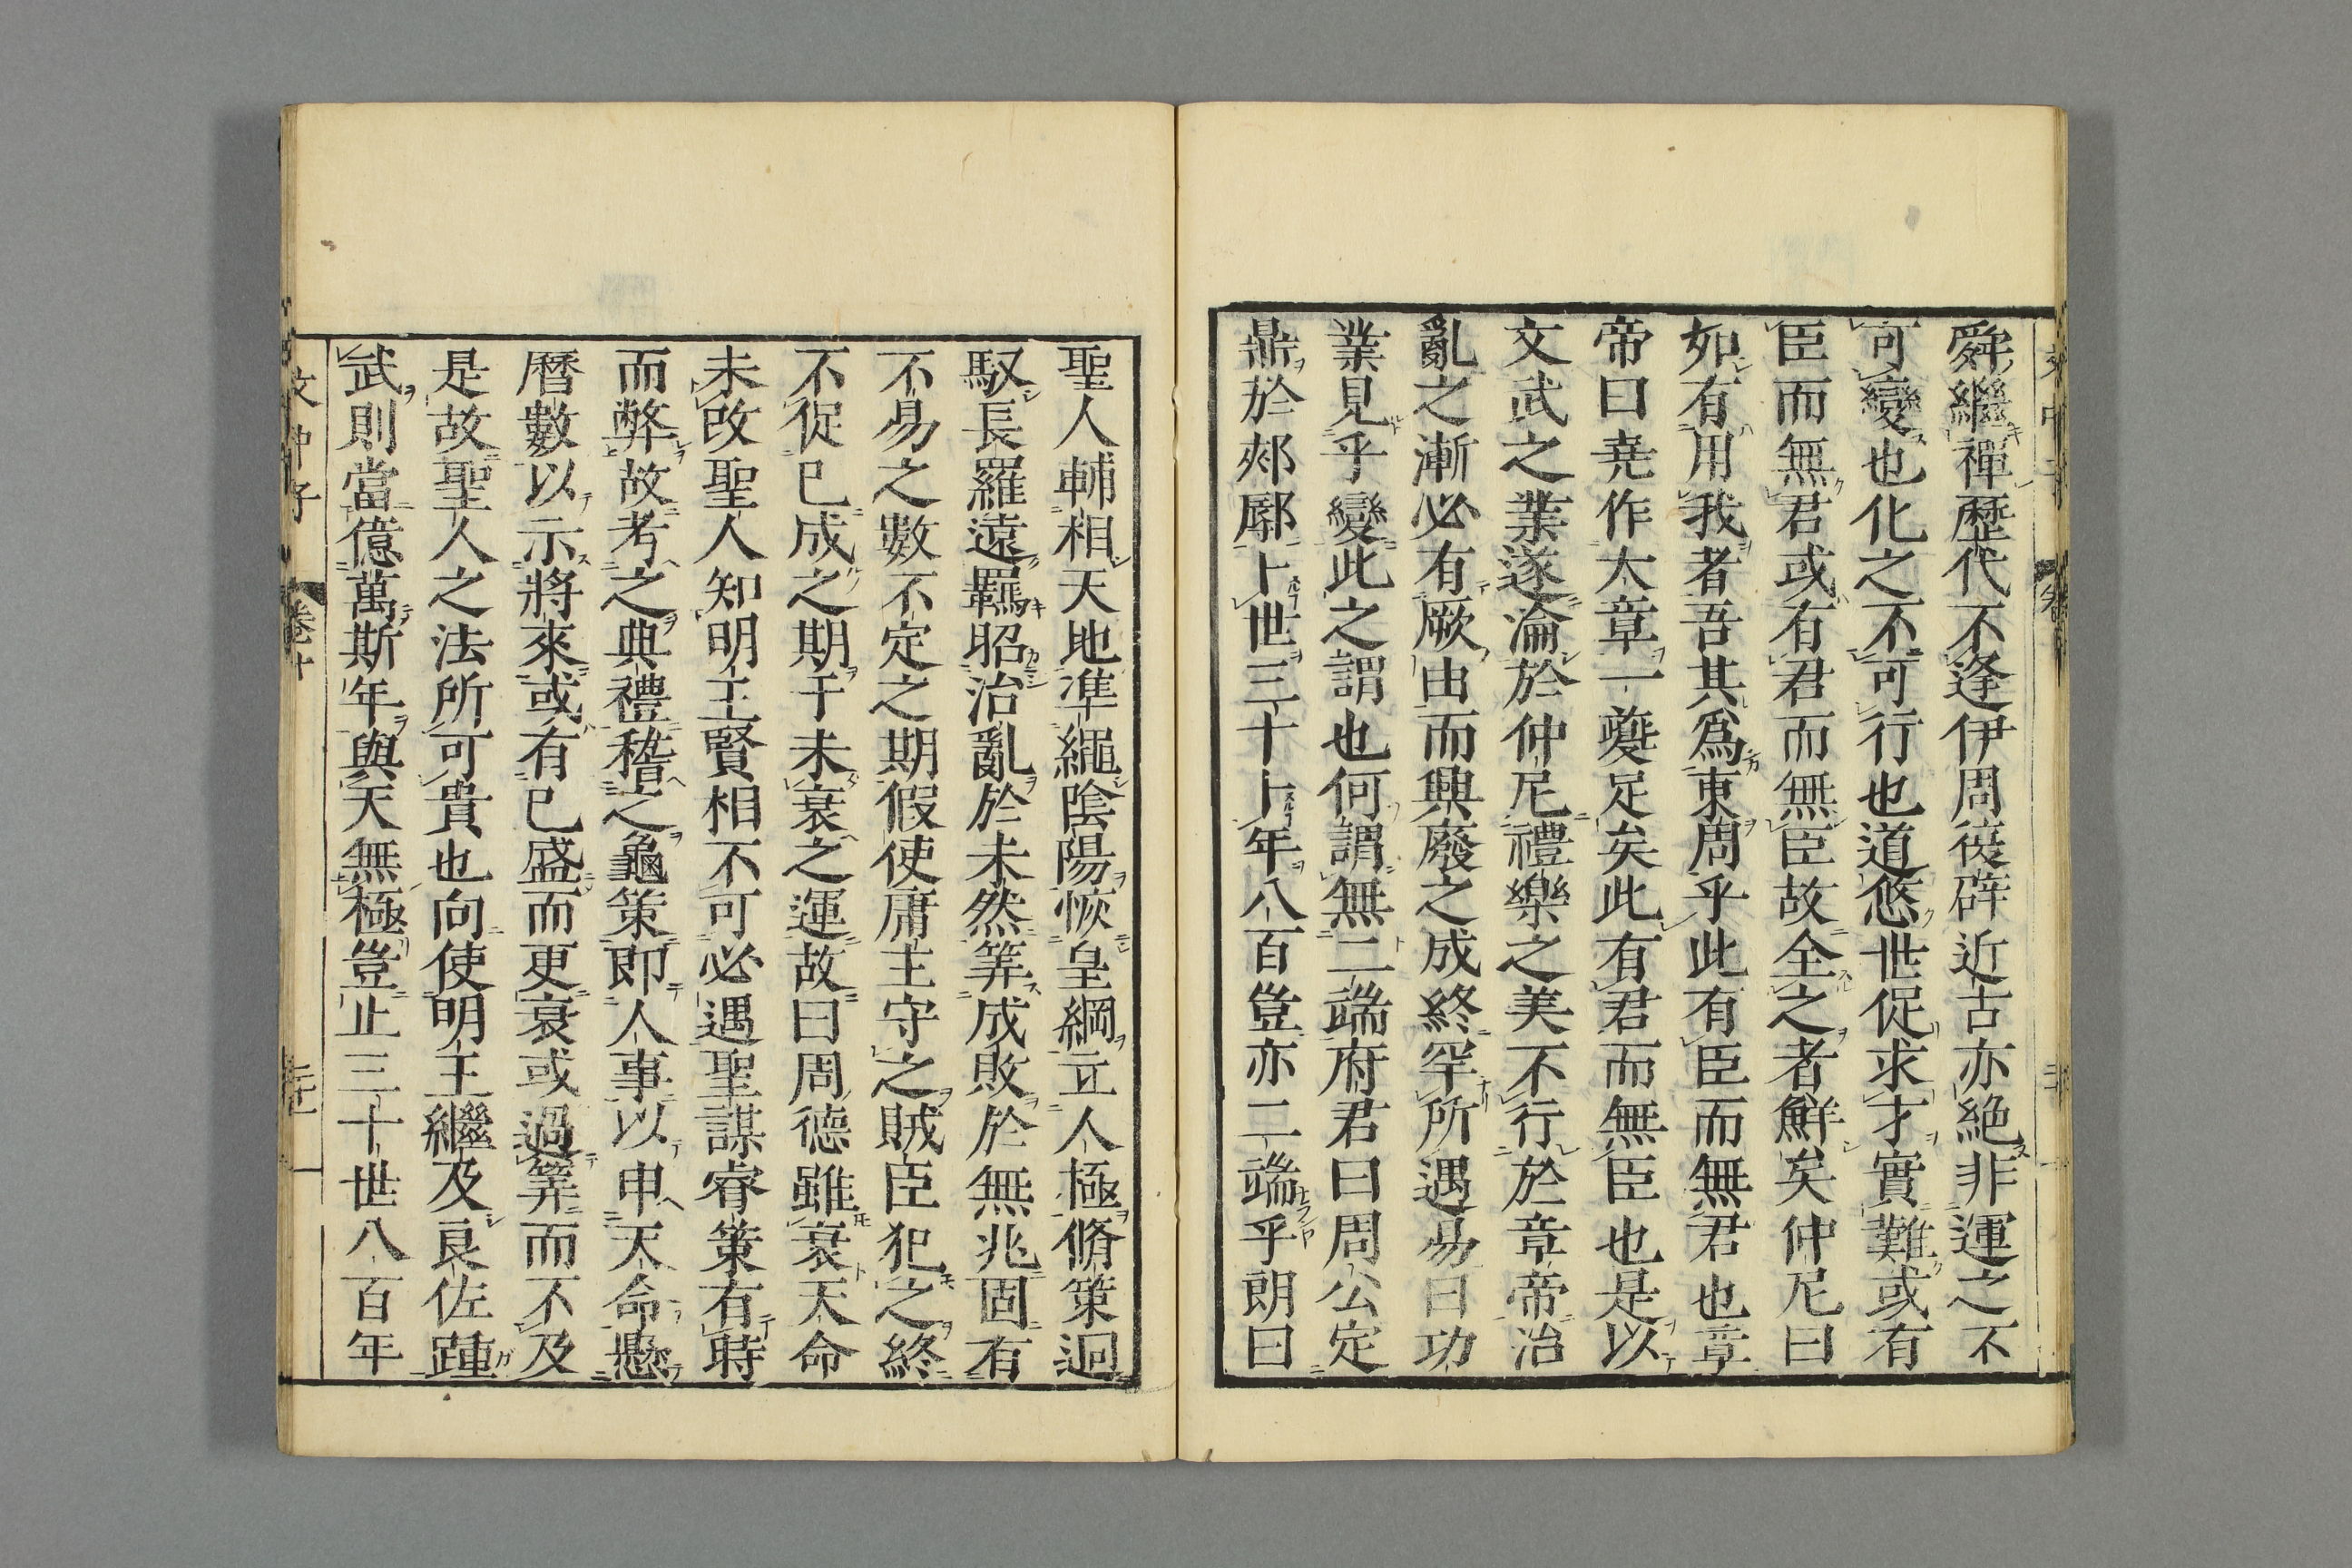 舜繼禪歷代不逢伊周復辟近古亦絶非運之不
可變也化之不可行也道悠世促求才實難或有
臣而無君或有君而無臣故全之者鮮矣仲尼曰
如有用我者吾其爲東周乎此有臣而無君也章
帝曰堯作大章一夔足矣此有君而無臣也是以
文武之業遂淪於仲尼禮樂之美不行於章帝治
亂之漸必有厥由而興廢之成終罕所遇易曰功
業見乎變此之謂也何謂無二端府君曰周公定
鼎於郟鄏卜世三十卜年八百豈亦二端乎朗曰
聖人輔相天地準繩陰陽恢皇綱立人極脩策迥
馭長羅遠羈昭治亂於未然筭成敗於無兆固有
不易之數不定之期假使庸主守之賊臣犯之終
不促已成之期于未衰之運故曰周德雖衰天命
未改聖人知明王賢相不可必遇聖謀睿策有時
而弊故考之典禮稽之龜策即人事以申天命懸
曆數以示將來或有已盛而更衰或過筭而不及
是故聖人之法所可貴也向使明王繼及良佐踵
武則當億萬斯年與天無極豈止三十世八百年
文中子 卷十 三十一